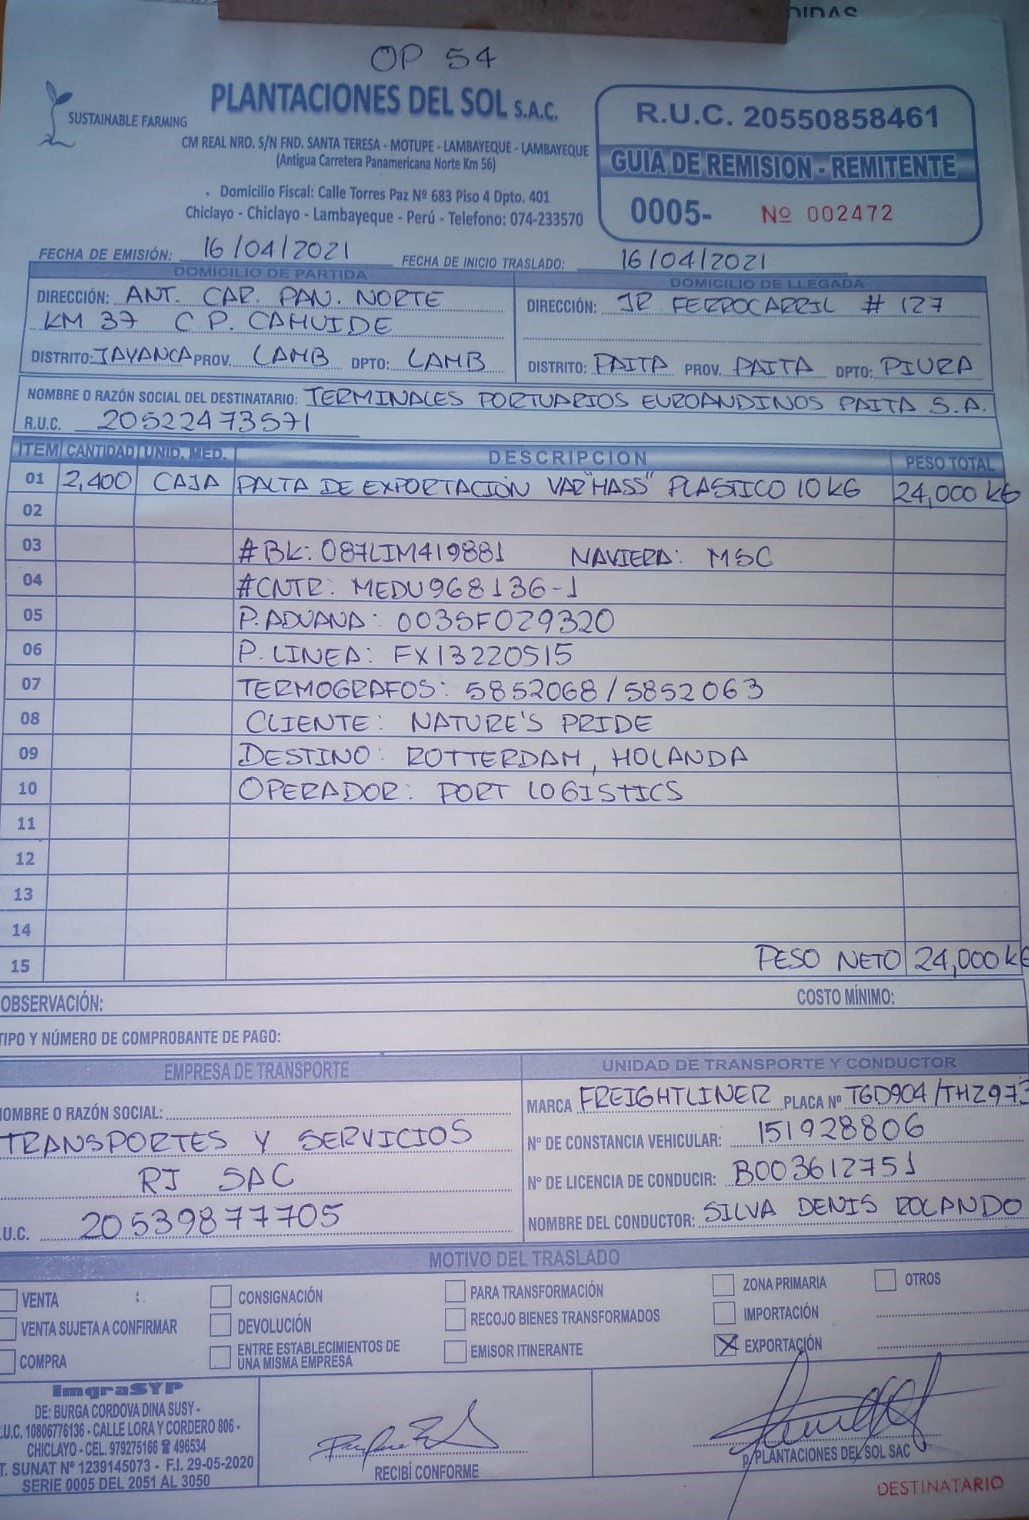 DIDAS
OP 54
SUSTAINABLE FARMING
PLANTACIONES DEL SOL S.A.C.
CM REAL NRO. S/N FND. SANTA TERESA - MOTUPE - LAMBAYEQUE - LAMBAYEQUE
(Antigua Carretera Panamericana Norte Km 56)
Domicilio Fiscal: Calle Torres Paz Nº 683 Piso 4 Dpto. 401
Chiclayo - Chiclayo - Lambayeque - Perú - Telefono: 074-233570
R.U.C. 20550858461
GUIA DE REMISION - REMITENTE
0005- Nº 002472
FECHA DE EMISIÓN: 16/04/2021 FECHA DE INICIO TRASLADO: 16/04/2021
DOMICILIO DE PARTIDA
DIRECCIÓN: ANT. CAR. PAN. NORTE
KM 37 C P. CAHUIDE
DISTRITO: JAYANCA PROV. LAMB DPTO: LAMB
DOMICILIO DE LLEGADA
DIRECCIÓN: JR FERROCARRIL # 127
DISTRITO: PAITA PROV. PAITA DPTO: PIURA
NOMBRE O RAZÓN SOCIAL DEL DESTINATARIO: TERMINALES PORTUARIOS EUROANDINOS PAITA S.A.
R.U.C. 20522473571
ITEM CANTIDAD UNID. MED. DESCRIPCION PESO TOTAL
01 2,400 CAJA PALTA DE EXPORTACIÓN VAR "HASS" PLASTICO 10 KG 24,000 KG
02
03 #BK: 087LIM419881 NAVIERA: MSC
04 #CNTR: MEDU968136-1
05 P. ADUANA: 0035F029320
06 P. LINEA: FX13220515
07 TERMOGRAFOS: 5852068/5852063
08 CLIENTE: NATURE'S PRIDE
09 DESTINO: ROTTERDAM, HOLANDA
10 OPERADOR: PORT LOGISTICS
11
12
13
14
15 PESO NETO 24,000 KG
OBSERVACIÓN: COSTO MÍNIMO:
TIPO Y NÚMERO DE COMPROBANTE DE PAGO:
EMPRESA DE TRANSPORTE
NOMBRE O RAZÓN SOCIAL:
TRANSPORTES Y SERVICIOS
RJ SAC
.U.C. 20539877705
UNIDAD DE TRANSPORTE Y CONDUCTOR
MARCA FREIGHTLINER PLACA Nº T6D904/THZ973
Nº DE CONSTANCIA VEHICULAR: 151928806
Nº DE LICENCIA DE CONDUCIR: B003612751
NOMBRE DEL CONDUCTOR: SILVA DENIS ROLANDO
MOTIVO DEL TRASLADO
VENTA
VENTA SUJETA A CONFIRMAR
COMPRA
CONSIGNACIÓN
DEVOLUCIÓN
ENTRE ESTABLECIMIENTOS DE
UNA MISMA EMPRESA
PARA TRANSFORMACIÓN
RECOJO BIENES TRANSFORMADOS
EMISOR ITINERANTE
ZONA PRIMARIA
IMPORTACIÓN
EXPORTACIÓN
OTROS
ImgraSYP
DE: BURGA CORDOVA DINA SUSY -
.U.C. 10806776136 - CALLE LORA Y CORDERO 806 -
CHICLAYO - CEL. 979275166 ☎ 496534
T. SUNAT Nº 1239145073 - F.I. 29-05-2020
SERIE 0005 DEL 2051 AL 3050
RECIBÍ CONFORME
P. PLANTACIONES DEL SOL SAC
DESTINATARIO